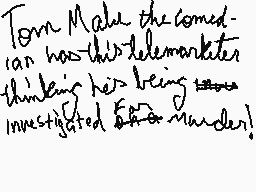 Tom Mabe the comed-
ian has this telemarkiter
thinking he's being
investigated for murder!